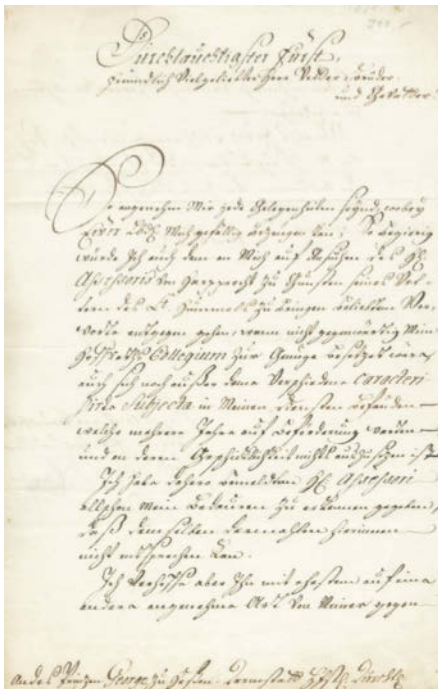 Durchlauchtigster Fürst,
freundlich Vielgeliebter Herr Vetter Bruder
und Gevatter!
So angenehm Mir jede Gelegenheiten seynd, wobey
Euer Mich gefällig erzeigen kan; So begierig
würde Ich auch dem an Mich auf Ansuchen des H.
Assessoris von Harpprecht zu Gunsten seines Vet-
tern des zu bringen beliebten Vor-
worte entgegen gehen, wann nicht gegenwärtig Mein
Collegium zur Genüge besetzet wäre
auch sich noch außer deme Verschiedene Caracteri-
sirte Subjecta in Meinen Diensten befinden
welche mehrere Jahre auf Beförderung warten
und an deren nichts auszusetzen ist
Ich habe dahero bemeldtem H. Assessori
Mein Bedauren zu erkennen gegeben,
daß demselben dermahlen hierinnen
nicht entsprechen kan.
Ich Verhoffe aber Ihm mit ehestem auf eine
andere angenehme Art von Meiner gegen
An des Prinzen George zu Hessen-Darmstadt Durchl.